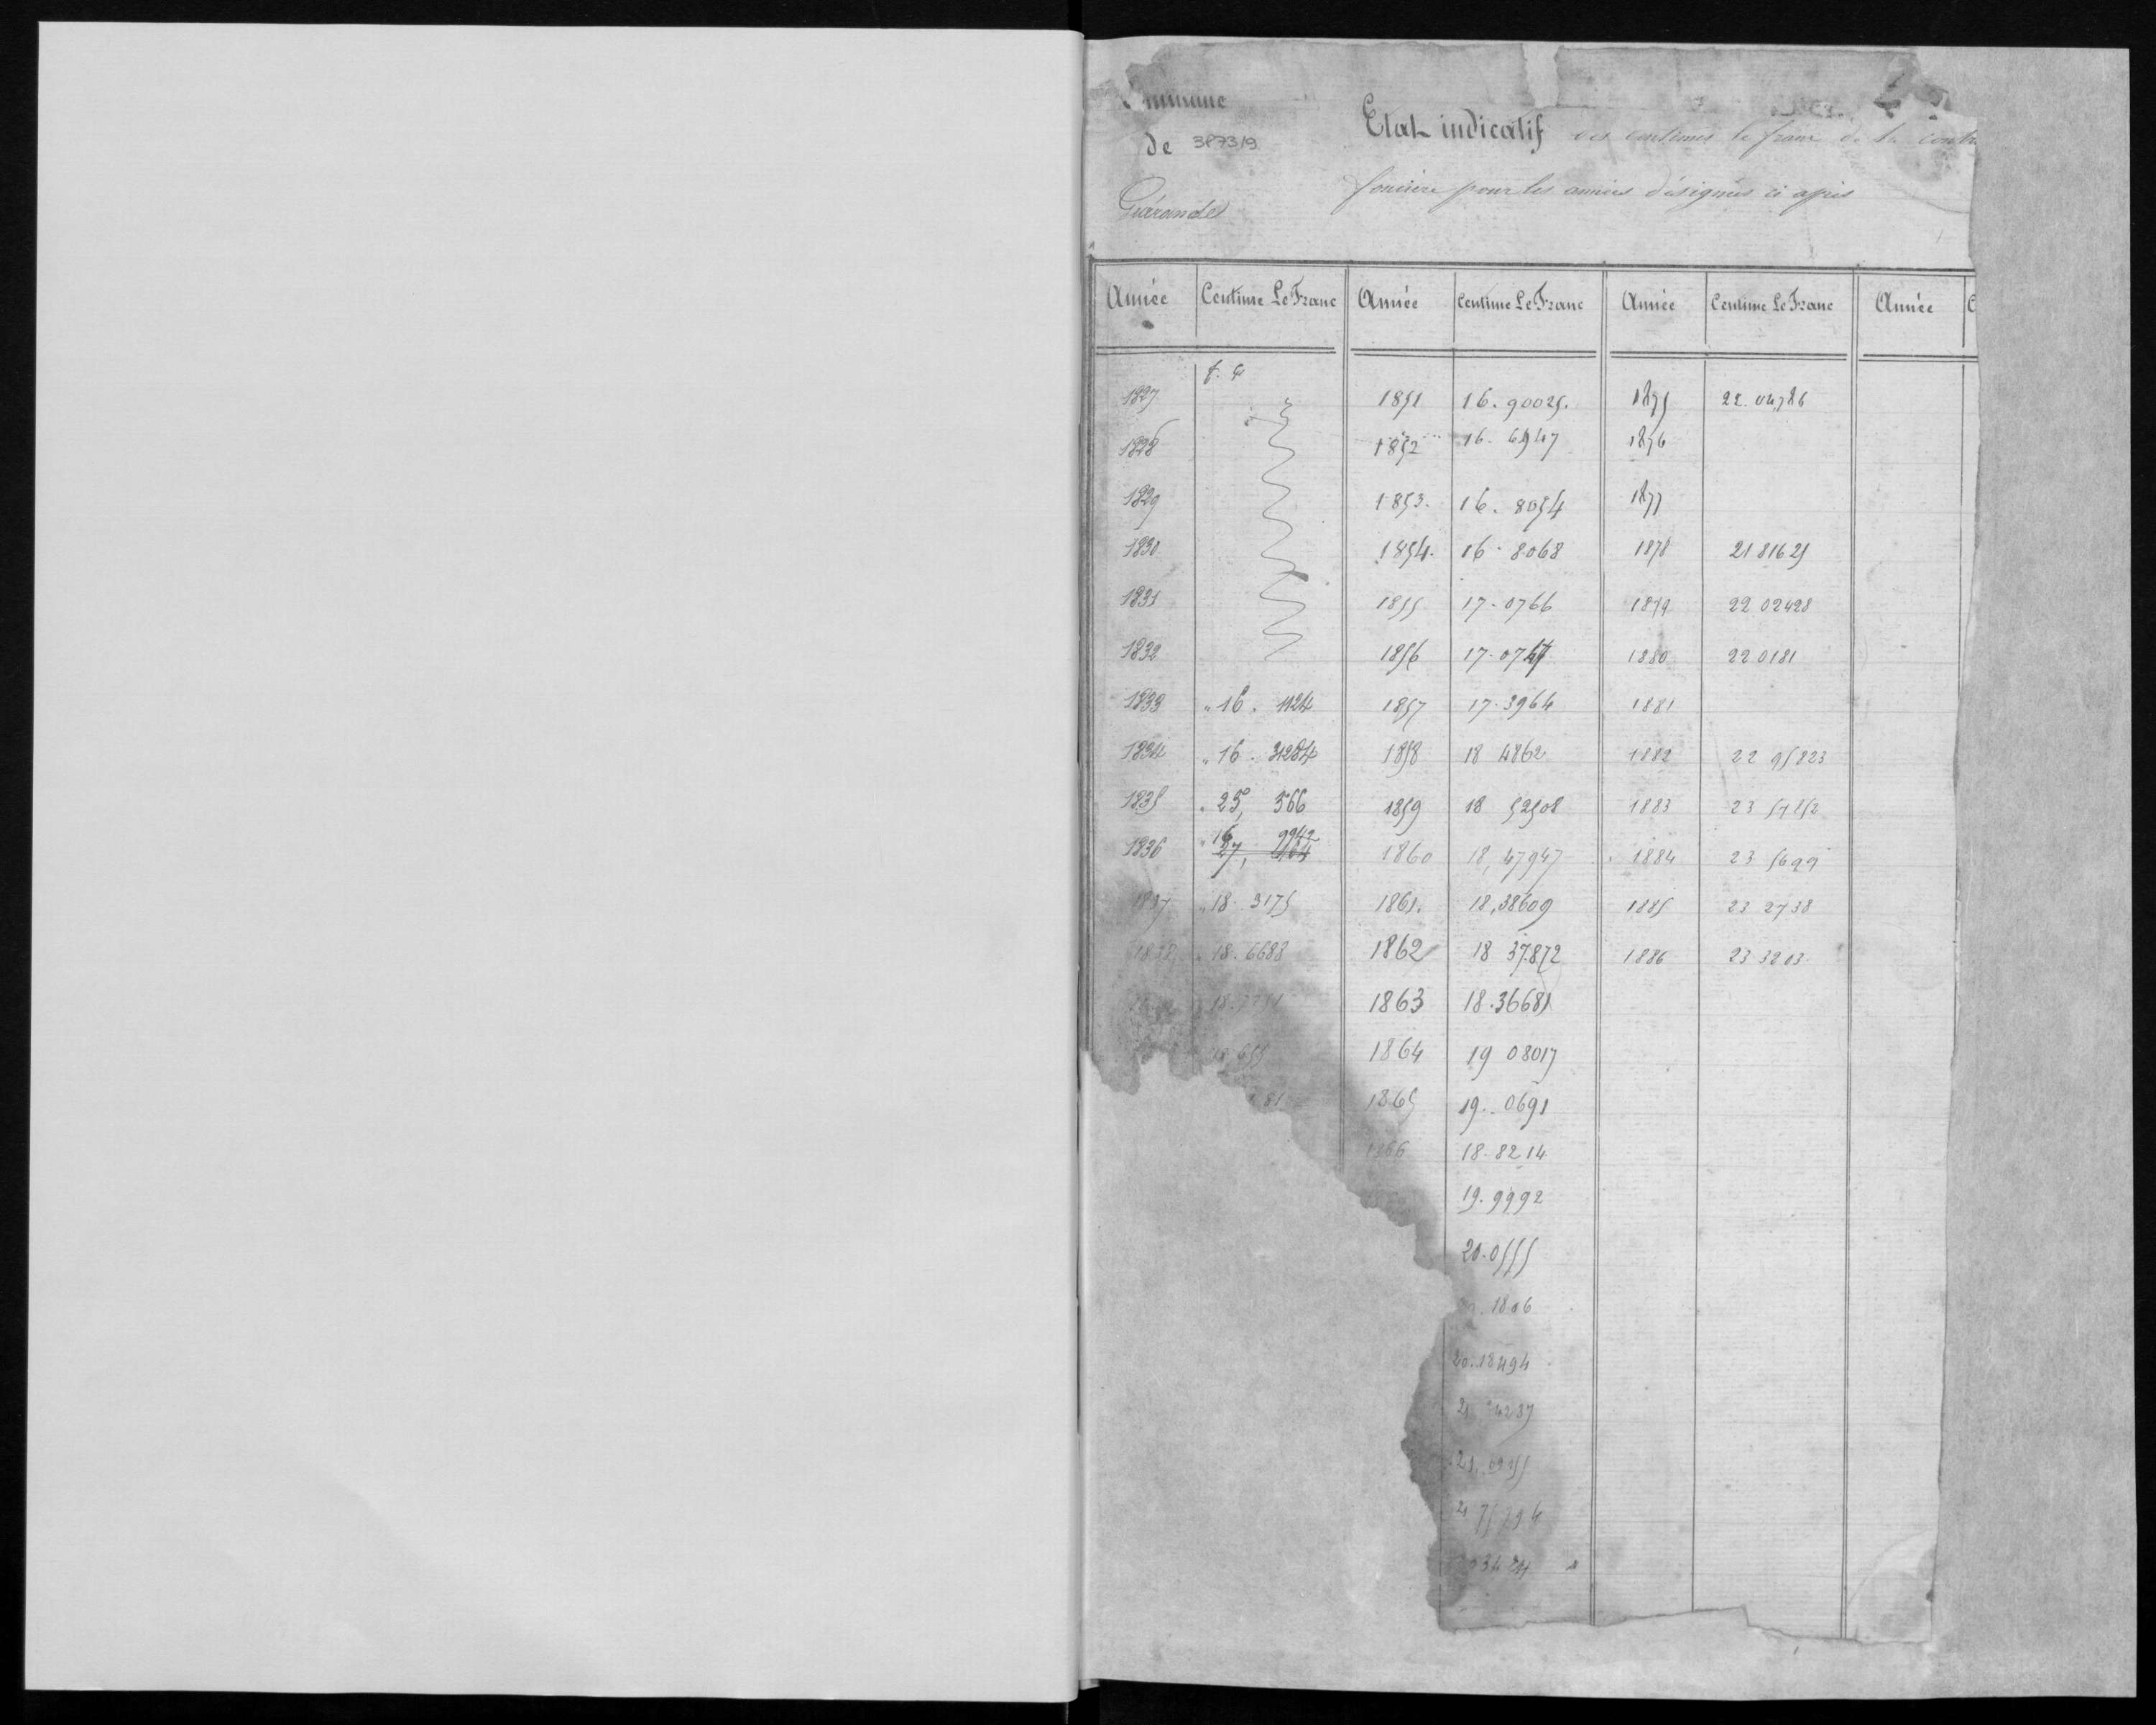 Commune
de 387319
Guérande
Etat indicatif des centimes le franc de la contri
foncière pour les années désignées ci après
Année Centime Le Franc Année Centime Le Franc Année Centime Le Franc Année C
f. c
1827 1851 16.90025. 1875 22.04786
1828 1852 16.6947 1876
1829 1853. 16.8054 1877
1830 1854. 16.8068 1878 21 81625
1831 1855 17.0766 1879 22 02428
1832 1856 17.0747 1880 22 0181
1833 " 16. 1124 1857 17.3964 1881
1834 " 16. 31284 1858 18 4862 1882 22 95823
1835 " 25, 566 1859 18 52508 1883 23 57852
1836 " 16, 9942 1860 18,47947 1884 23 5699
1837 " 18.3175 1861. 18,38609 1885 23 2738
1838 18.6688 1862 18 37.872 1886 23 3203
1863 18.36681
18.655 1864 19 08017
81 1865 19.0691
1866 18.8214
19.9992
20.0555
1806
20.18494
21
21
21